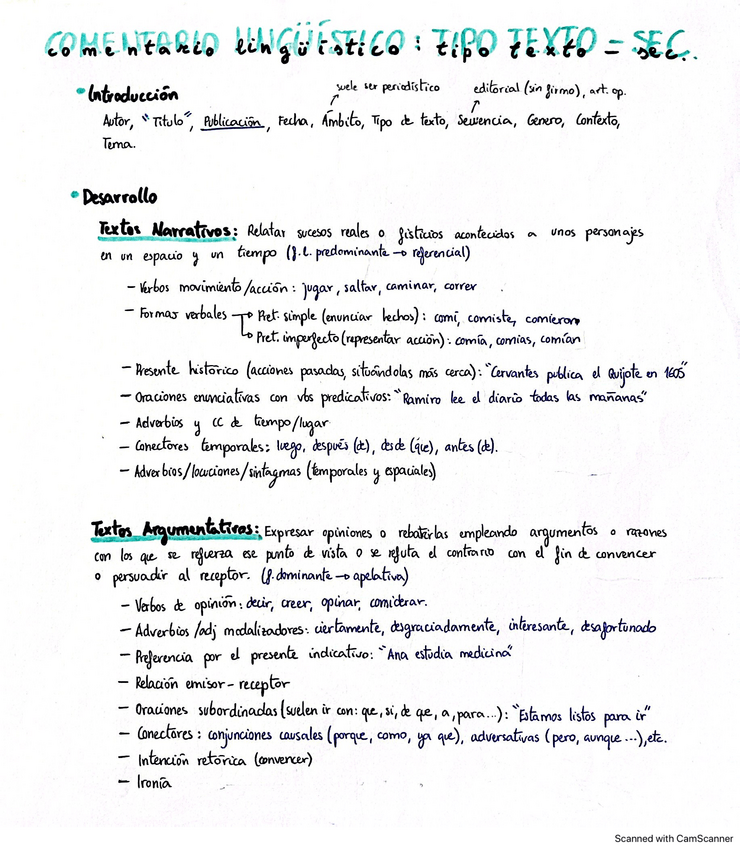 COMENTARIO LINGÜÍSTICO : TIPO TEXTO = SEC.
suele ser periodístico editorial (sin firma), art. op.
• Introducción
Autor, "Título", Publicación, Fecha, Ámbito, Tipo de texto, Secuencia, Género, Contexto,
Tema.
• Desarrollo
Textos Narrativos: Relatar sucesos reales o ficticios acontecidos a unos personajes
en un espacio y un tiempo (f.l. predominante → referencial)
- Verbos movimiento/acción: jugar, saltar, caminar, correr
- Formas verbales → Pret. simple (enunciar hechos): comí, comiste, comieron
→ Pret. imperfecto (representar acción): comía, comías, comían
- Presente histórico (acciones pasadas, situándolas más cerca): "Cervantes publica el Quijote en 1605"
- Oraciones enunciativas con vbs predicativos: "Ramiro lee el diario todas las mañanas"
- Adverbios y CC de tiempo/lugar
- Conectores temporales: luego, después (de), desde (que), antes (de).
- Adverbios/locuciones/sintagmas (temporales y espaciales)
Textos Argumentativos: Expresar opiniones o rebatirlas empleando argumentos o razones
con los que se refuerza ese punto de vista o se refuta el contrario con el fin de convencer
o persuadir al receptor. (f. dominante → apelativa)
- Verbos de opinión: decir, creer, opinar, considerar.
- Adverbios/adj modalizadores: ciertamente, desgraciadamente, interesante, desafortunado
- Preferencia por el presente indicativo: "Ana estudia medicina"
- Relación emisor-receptor
- Oraciones subordinadas (suelen ir con: que, si, de que, a, para...): "Estamos listos para ir"
- Conectores: conjunciones causales (porque, como, ya que), adversativas (pero, aunque...), etc.
- Intención retórica (convencer)
- Ironía
Scanned with CamScanner